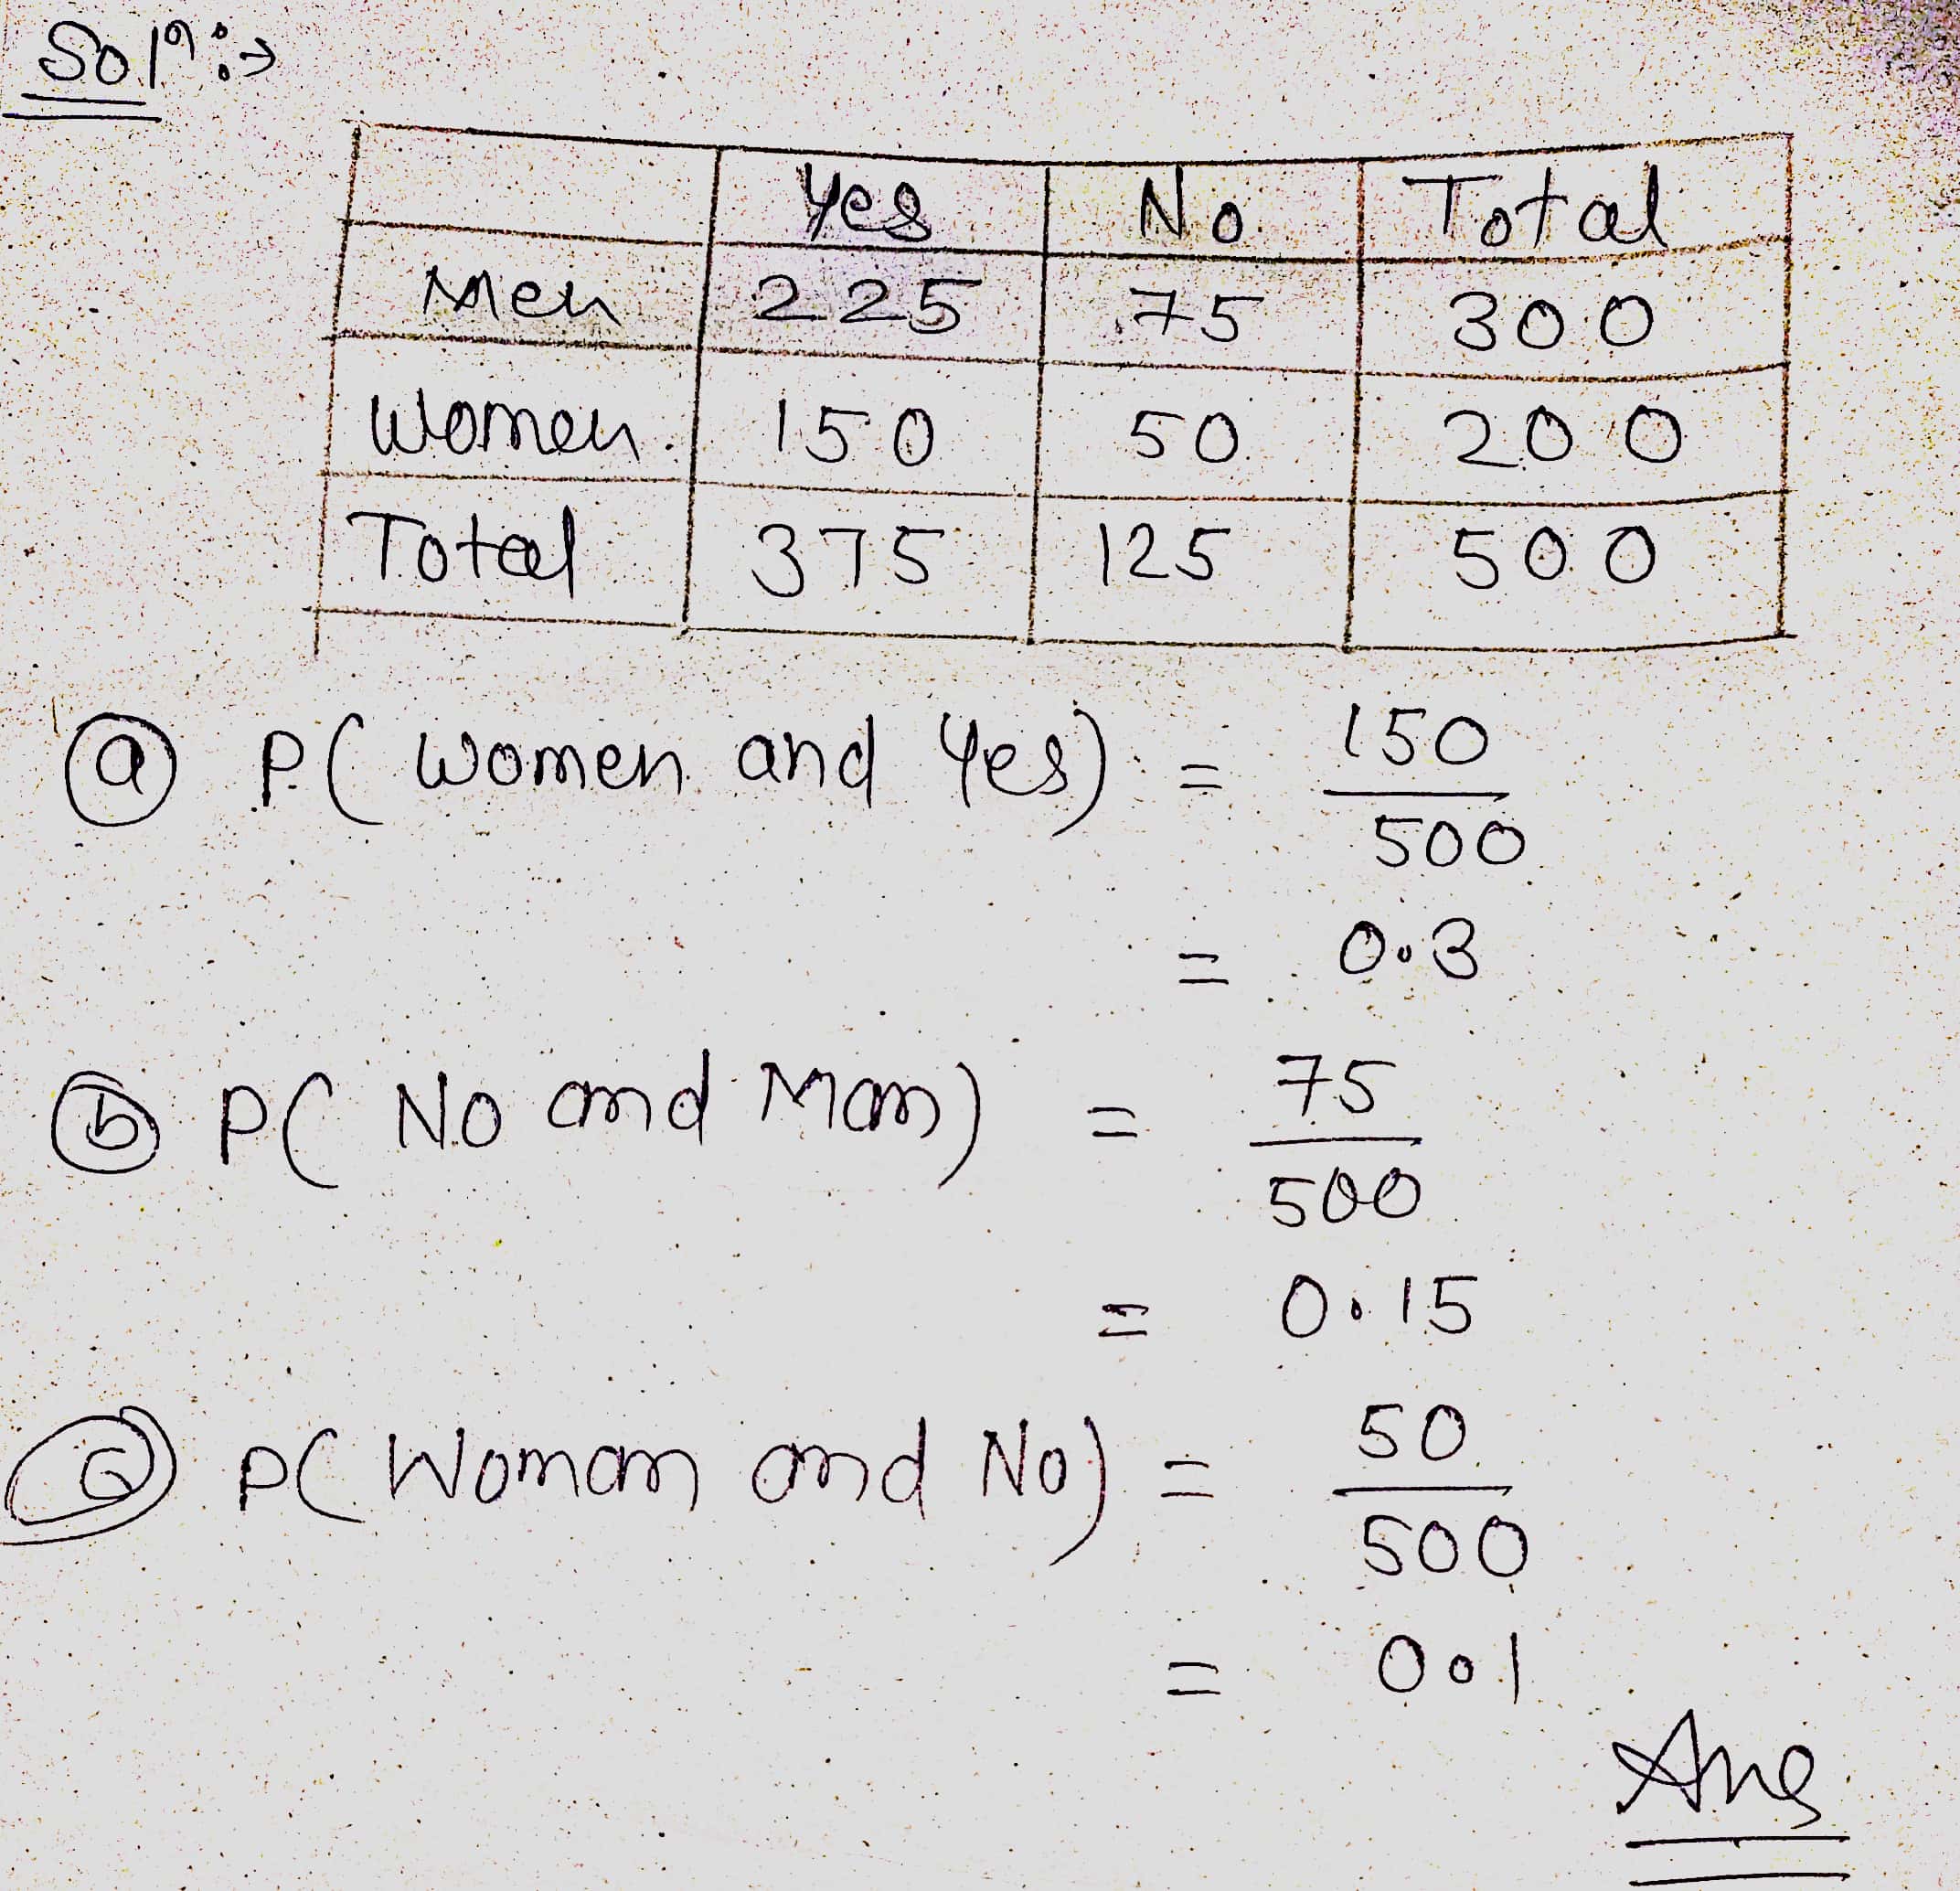 Solⁿ:→
Yes No. Total
Men 225 75 300
Women 150 50 200
Total 375 125 500
(a) P(Women and Yes) = 150/500
= 0.3
(b) P(No and Man) = 75/500
= 0.15
(c) P(Woman and No) = 50/500
= 0.1
Ans